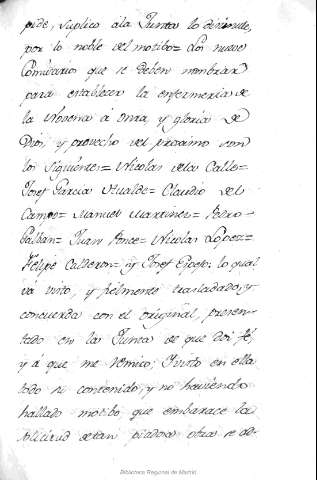 pide, suplico ála Junta lo
por lo noble del motibo= Los nuebe
Comisario que se deben nombrar
para establecer la enfermeria de
la Novena á onrra y gloria de
Dios y provecho del proximo son
los siguiente= Nicolas dela Calle=
Josef Garcia Atualde= Claudio del
Campo= Manuel Martinez= Pedro
Galban= Juan Ponce= Nicolas Lopez=
Felipe Calderon= y Josef Crespo; lo qual
vá visto, y fielmente trasladado, y
concuerda con el original, presen-
tado en la Junta de que Doi fé,
y á que me remito; Y visto en ella
todo su contenido, y no haviendo
hallado motibo que embarace la
solicitud detan piadosa obra se de-
Biblioteca Regional de Madrid